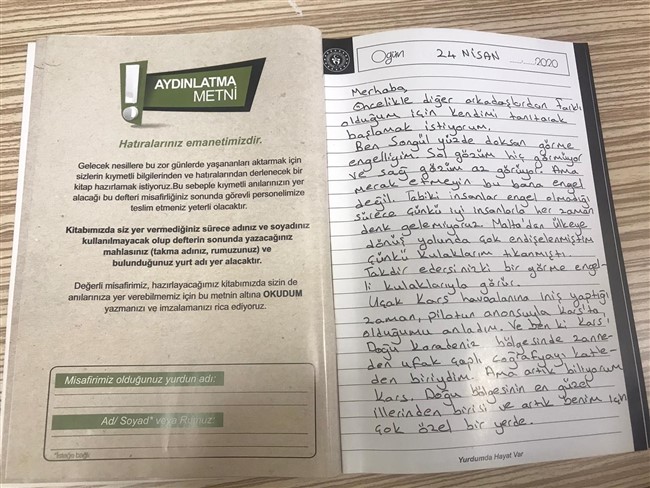 !
AYDINLATMA
METNİ
Hatıralarınız emanetimizdir.
Gelecek nesillere bu zor günlerde yaşananları aktarmak için
sizlerin kıymetli bilgilerinden ve hatıralarından derlenecek bir
kitap hazırlamak istiyoruz.Bu sebeple kıymetli anılarınızın yer
alacağı bu defteri misafirliğiniz sonunda görevli personelimize
teslim etmeniz yeterli olacaktır.
Kitabımızda siz yer vermediğiniz sürece adınız ve soyadınız
kullanılmayacak olup defterin sonunda yazacağınız
mahlasınız (takma adınız, rumuzunuz) ve
bulunduğunuz yurt adı yer alacaktır.
Değerli misafirimiz, hazırlayacağımız kitabımızda sizin de
anılarınıza yer verebilmemiz için bu metnin altına OKUDUM
yazmanızı ve imzalamanızı rica ediyoruz.
Misafirimiz olduğunuz yurdun adı:
Ad/ Soyad* veya Rumuz:
*İsteğe bağlı
O gün 24 NİSAN 2020
Merhaba,
Öncelikle diğer arkadaşlardan farklı
olduğum için kendimi tanıtarak
başlamak istiyorum.
Ben Songül yüzde doksan görme
engelliyim. Sol gözüm hiç görmüyor
ve sağ gözüm az görüyor. Ama
merak etmeyin bu bana engel
değil. Tabiki insanlar engel olmadığı
sürece çünkü iyi insanlarla her zaman
denk gelemiyoruz. Malta'dan ülkeye
dönüş yolunda çok endişelenmiştim
çünkü kulaklarım tıkanmıştı.
Takdir edersiniz ki bir görme engel-
li kulaklarıyla görür.
Uçak Kars havaalanına iniş yaptığı
zaman, pilotun anonsuyla Kars'ta
olduğumu anladım. Ve ben ki Kars'ı
Doğu Karadeniz bölgesinde zanne-
den ufak çaplı coğrafyayı katle-
den biriydim. Ama artık biliyorum
Kars, Doğu bölgesinin en güzel
illerinden birisi ve artık benim için
çok özel bir yerde.
Yurdumda Hayat Var